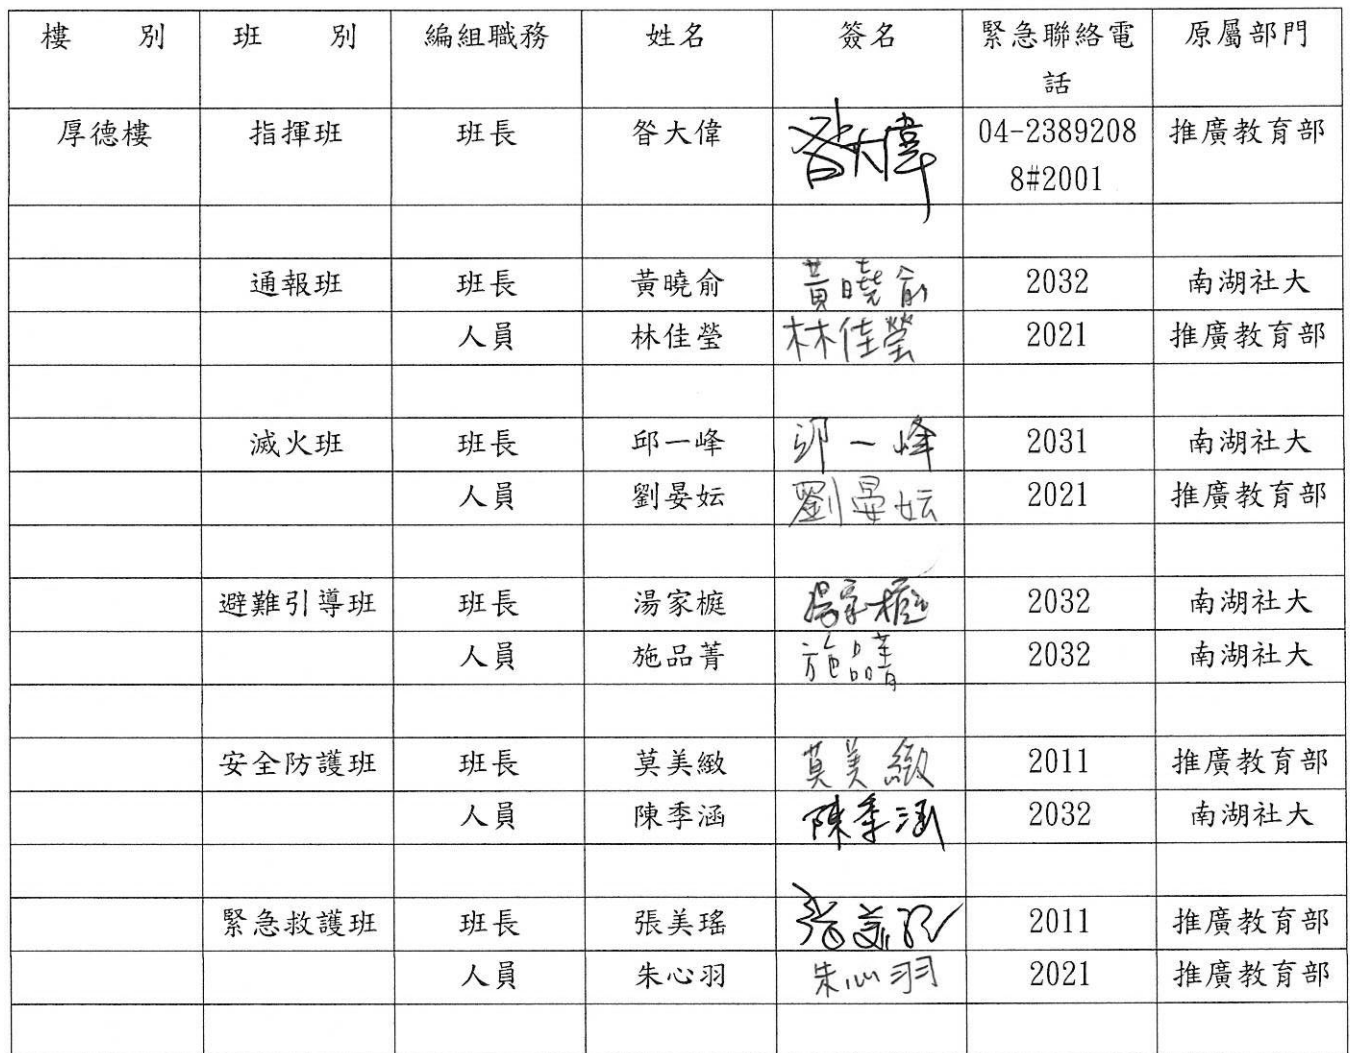 樓 別 班 別 編組職務 姓名 簽名 緊急聯絡電 原屬部門
話
厚德樓 指揮班 班長 昝大偉 昝大偉 04-2389208 推廣教育部
8#2001
通報班 班長 黃曉俞 黃曉俞 2032 南湖社大
人員 林佳瑩 林佳瑩 2021 推廣教育部
滅火班 班長 邱一峰 邱一峰 2031 南湖社大
人員 劉晏妘 劉晏妘 2021 推廣教育部
避難引導班 班長 湯家榳 湯家榳 2032 南湖社大
人員 施品菁 施品菁 2032 南湖社大
安全防護班 班長 莫美緻 莫美緻 2011 推廣教育部
人員 陳季涵 陳季涵 2032 南湖社大
緊急救護班 班長 張美瑤 張美瑤 2011 推廣教育部
人員 朱心羽 朱心羽 2021 推廣教育部